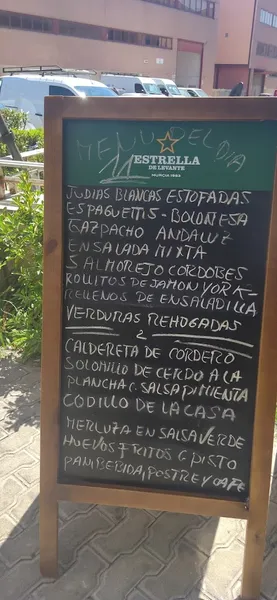 MENU DEL DIA
11
ESTRELLA
DE LEVANTE
MURCIA 1963
JUDIAS BLANCAS ESTOFADAS
ESPAGUETTIS-BOLOÑESA
GAZPACHO ANDALUZ
ENSALADA MIXTA
SALMOREJO CORDOBES
ROLLITOS DE JAMON YORK-
RELLENOS DE ENSALADILLA
VERDURAS REHOGADAS
2
CALDERETA DE CORDERO
SOLOMILLO DE CERDO A LA
PLANCHA C. SALSA PIMIENTA
CODILLO DE LA CASA
MERLUZA EN SALSA VERDE
HUEVOS FRITOS C PISTO
PAN, BEBIDA, POSTRE Y CAFE